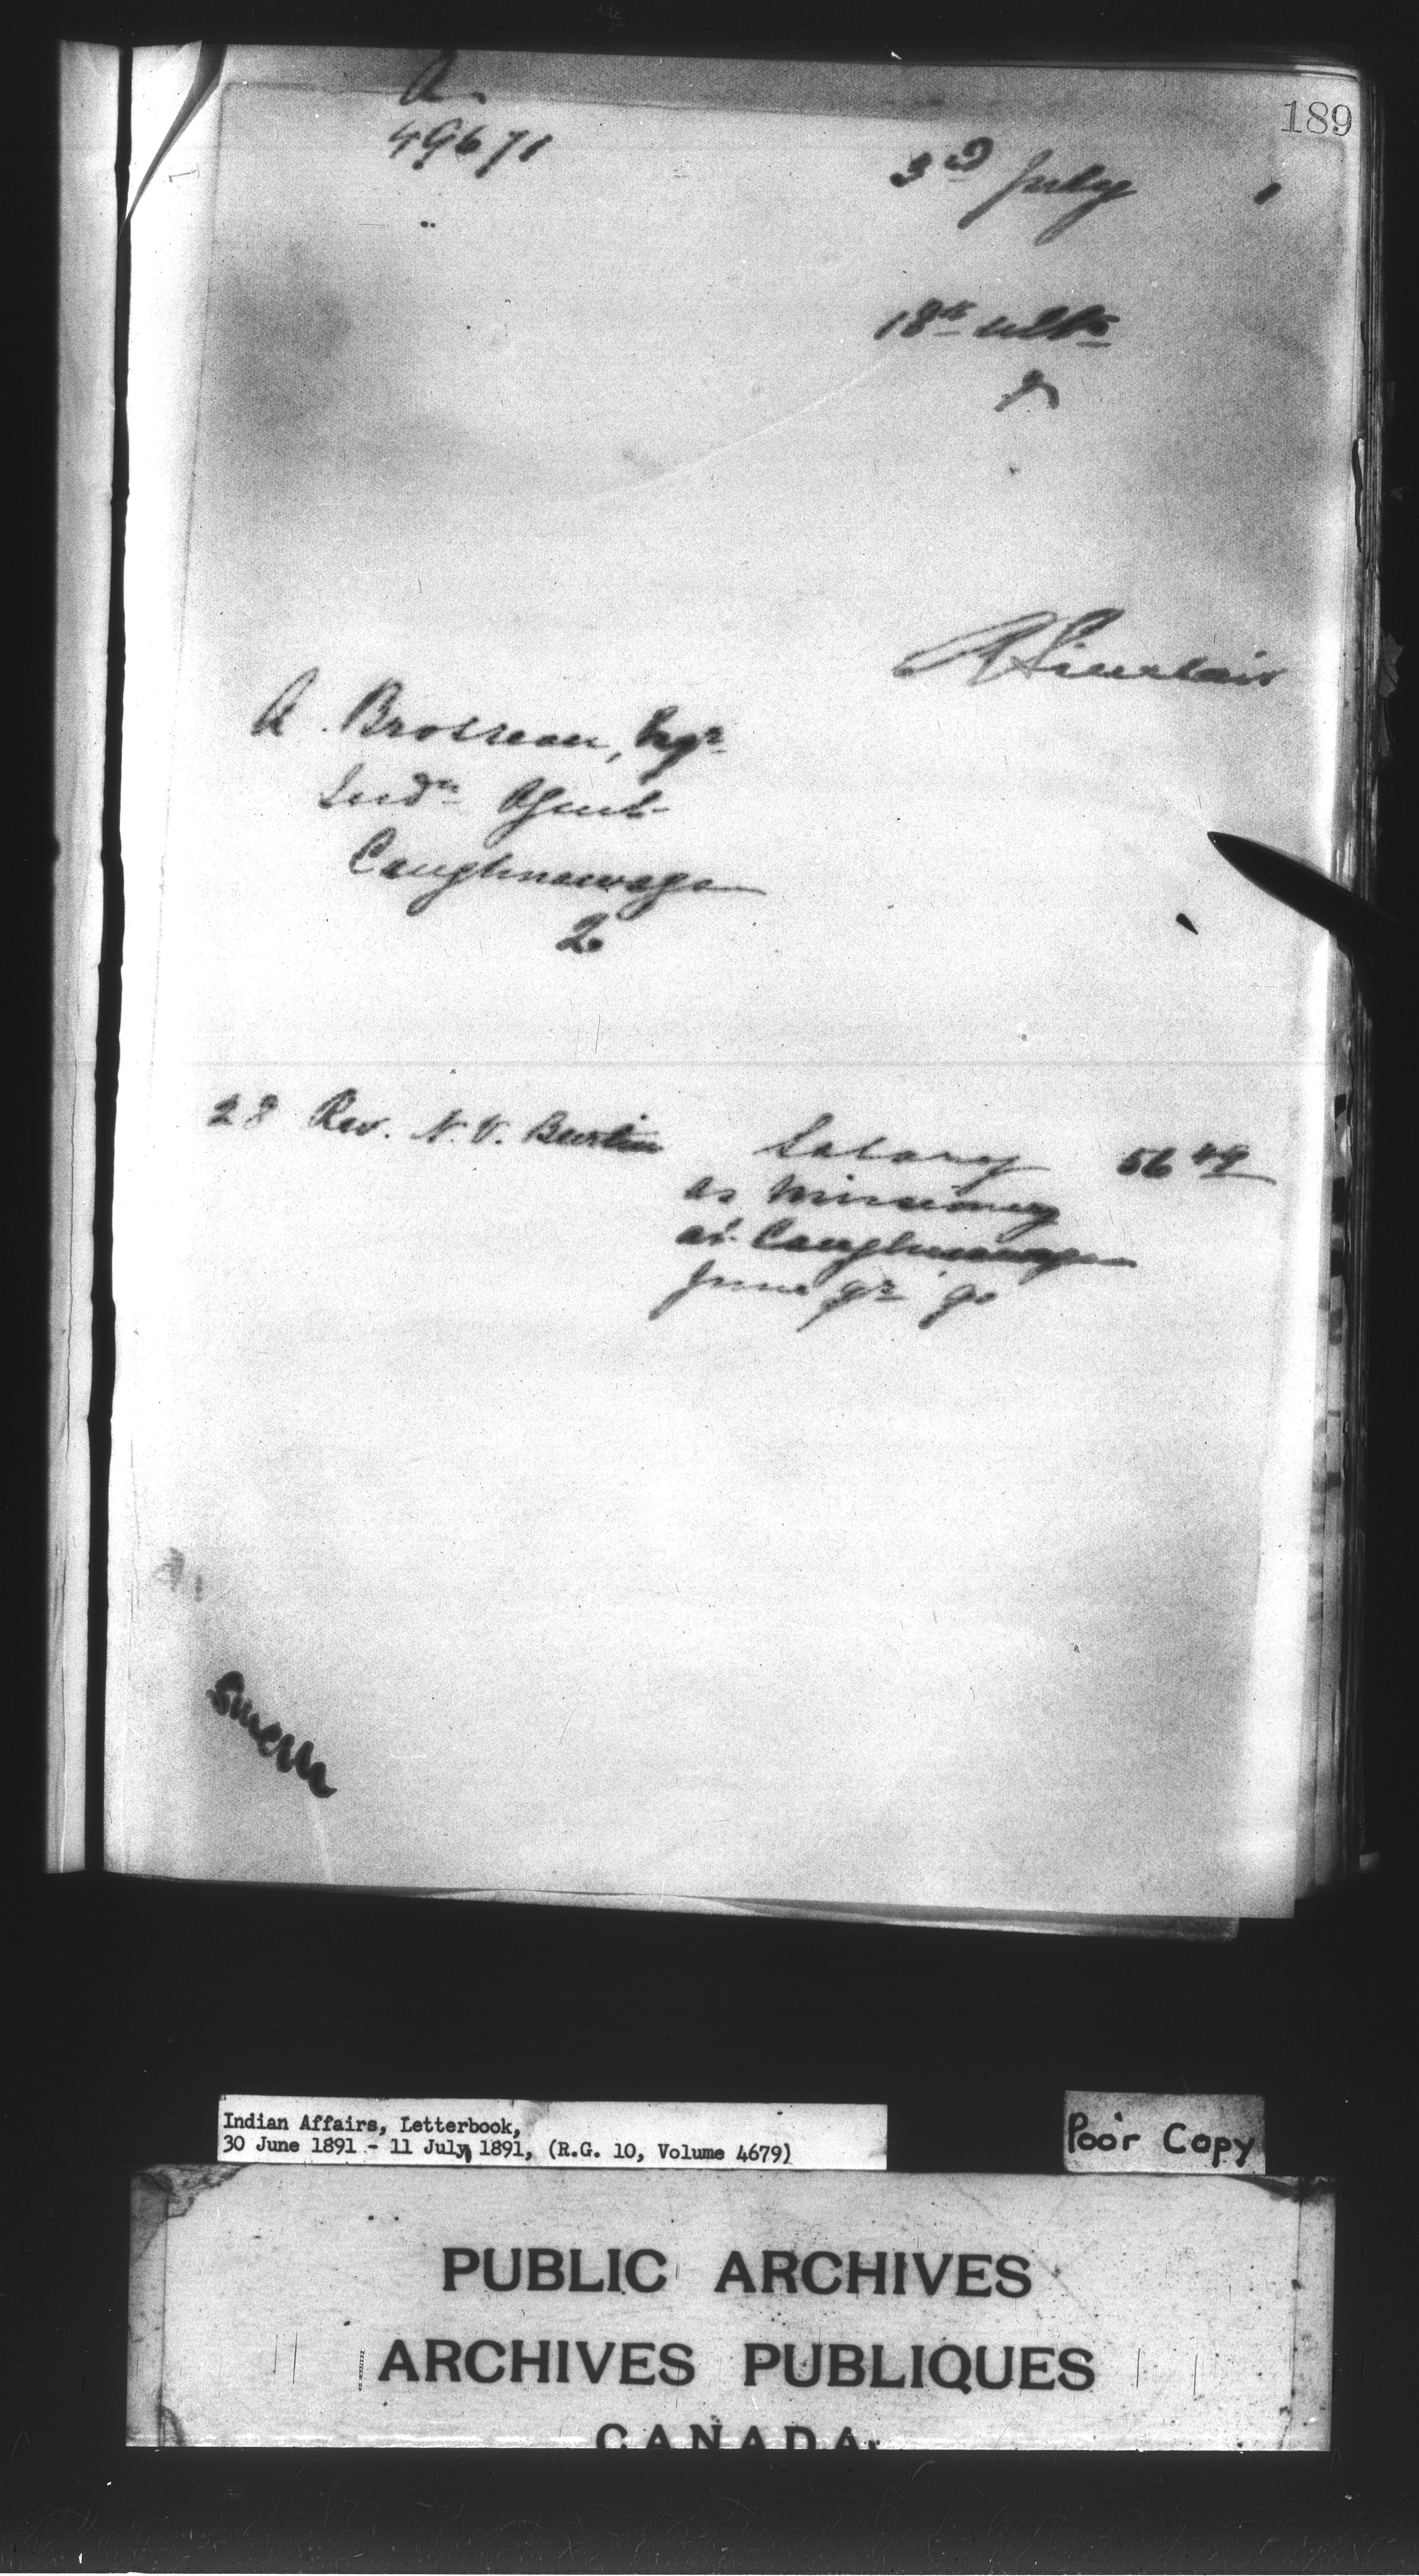 189
A.
49671
3rd July 1
18th ulto
A Sinclair
A. Brosseau, Esqr
Indn Agent
Caughnawaga
2
28 Rev. N. V. Burtin Salary 56 49
as Missionary
at Caughnawaga
June qr 90
Indian Affairs, Letterbook,
30 June 1891 - 11 July 1891, (R.G. 10, Volume 4679)
Poor Copy
PUBLIC ARCHIVES
ARCHIVES PUBLIQUES
CANADA